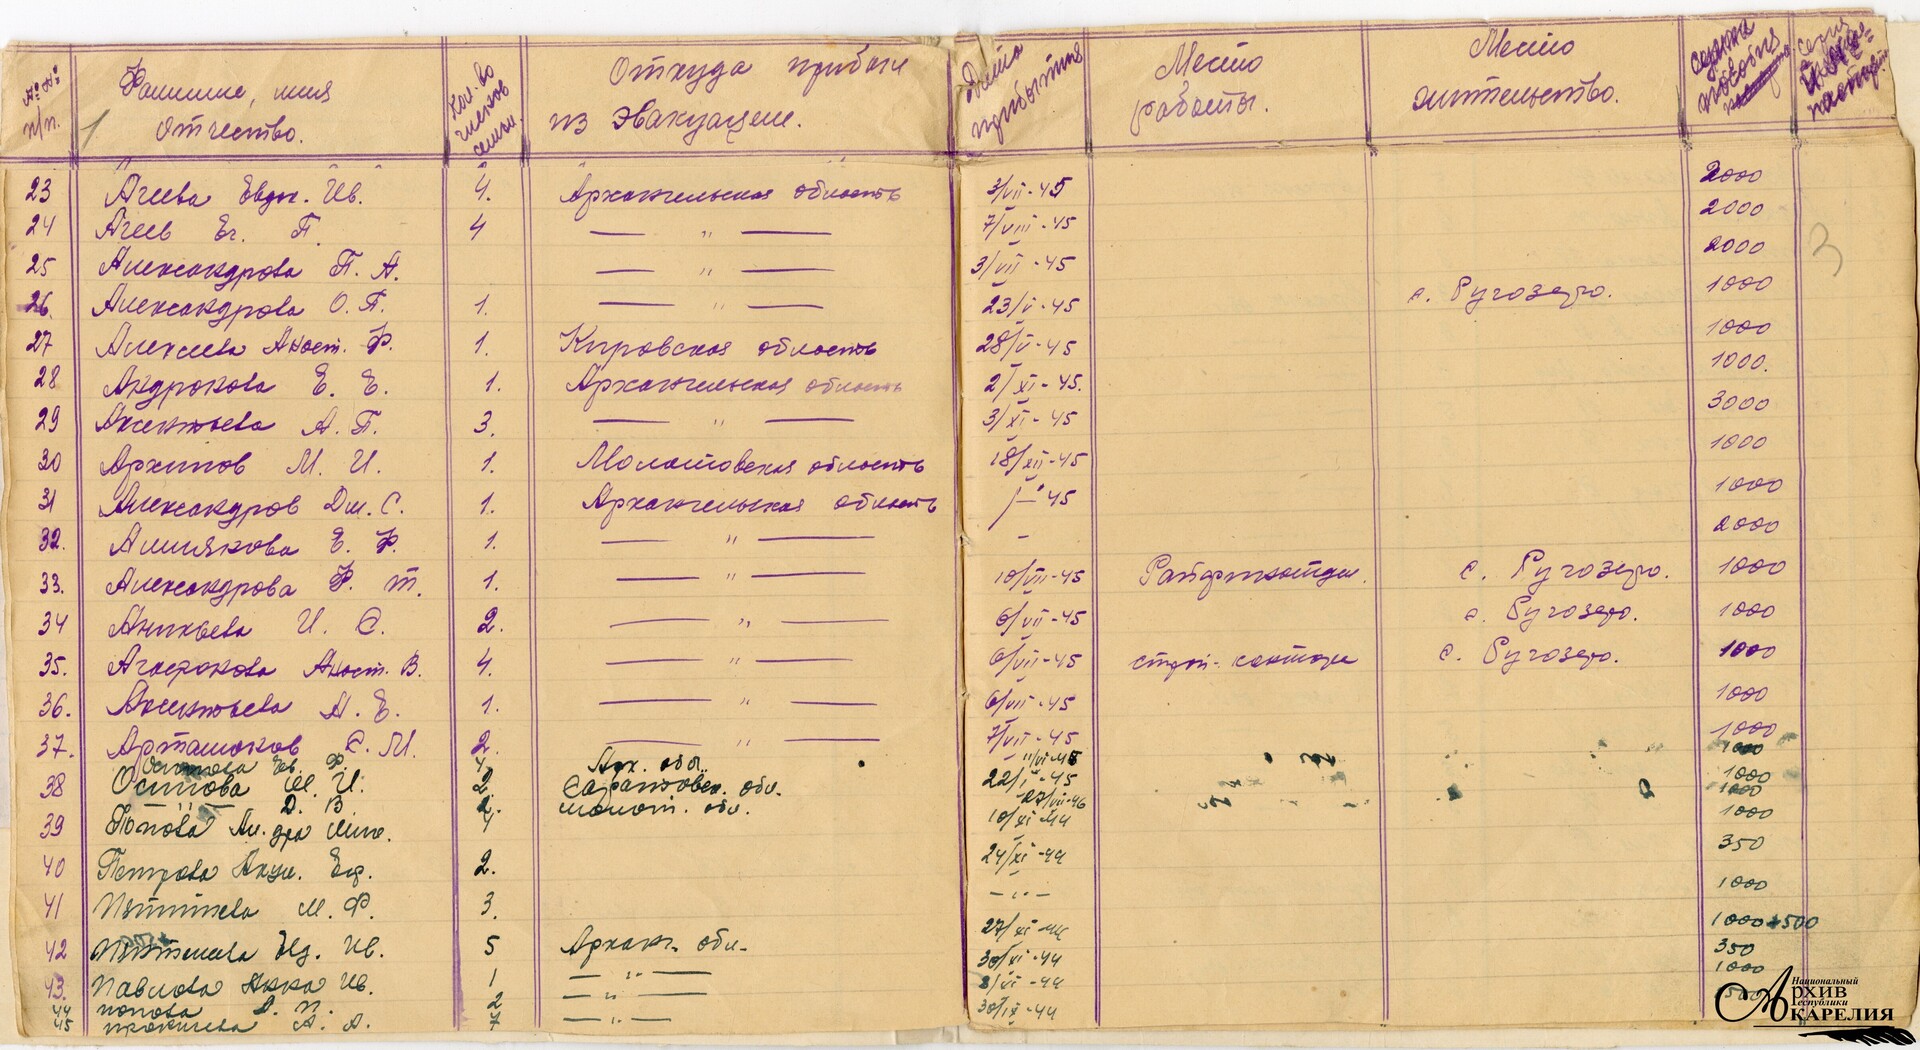 №№ п/п. Фамилие, имя отчество. Кол-во членов семьи. Откуда прибыл из эвакуации. Дата прибытия Место работы. Место жительство. Сумма пособия
1
3
23 Агеева Евдок. Ив. 4. Архангельская область 3/VII-45 2000
24 Агеев Ег. П. 4 — " — 7/VIII-45 2000
25 Александрова П. А. — " — 3/VII-45 2000
26. Александрова О. П. 1. — " — 23/V-45 с. Ругозеро. 1000
27 Алексеева Анаст. Ф. 1. Кировская область 28/V-45 1000
28 Андронова Е. Е. 1. Архангельская область 2/XI-45. 1000.
29 Аксентьева А. П. 3. — " — 3/XI-45 3000
30 Архипов М. И. 1. Молотовская область 18/XII-45 1000
31 Александров Дм. С. 1. Архангельская область 45 1000
32. Е. Ф. 1. — " — - 2000
33. Александрова Ф. Т. 1. — " — 10/VII-45 с. Ругозеро. 1000
34 Аникьева И. С. 2. — " — 6/VII-45 с. Ругозеро. 1000
35. Агафонова Анаст. В. 4. — " — 6/VII-45 строй-контора с. Ругозеро. 1000
36. Аксентьева А. Е. 1. — " — 6/VII-45 1000
37. Арташоков С. М. 2. — " — 7/VII-45 1000
Ев. Ф. 4. Арх. обл. 11/VI-45 1000
38 И. 2. Саратовск. обл. 22/ -45 1000
Д. В. 2. молот. обл. 27/VII-46 1000
39 Попова 4 10/XI-44 1000
40 Петрова Акул. Еф. 2. 24/XI-44 350
41 М. Ф. 3. - " - 1000
42 Ив. 5 Арханг. обл. 27/XI-44 1000+500
43. Павлова Анна Ив. 1 — " — 30/XI-44 350
44 Попова Д. П. 2 — " — 8/VI-44 1000
45 А. А. 7 — " — 30/IX-44
Национальный
Архив
Республики
Карелия